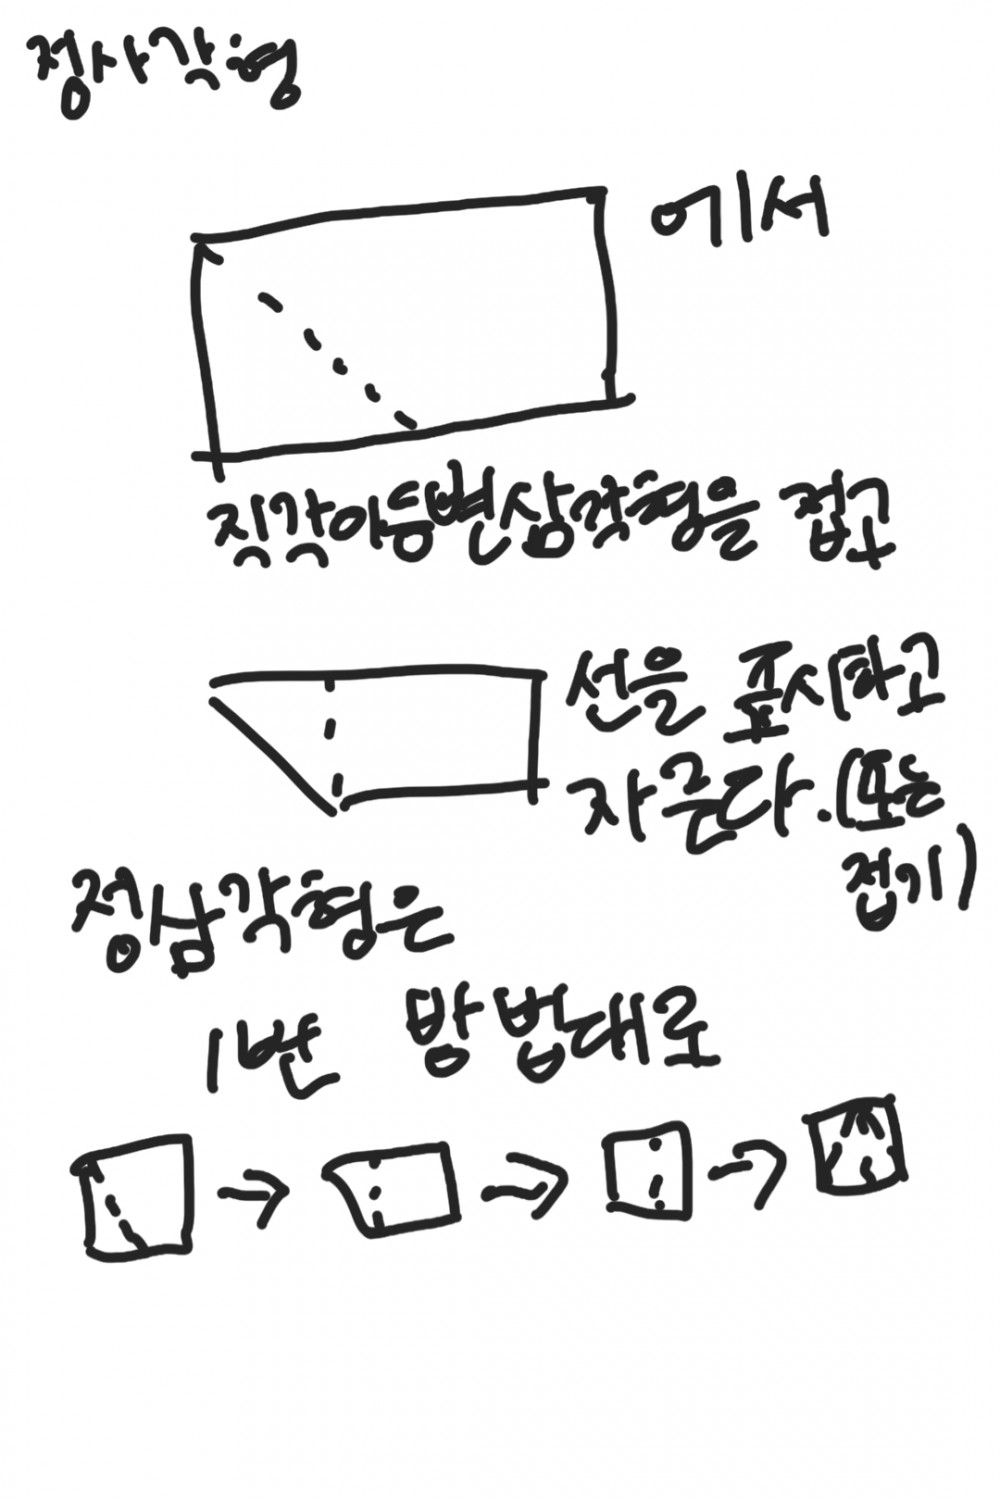 정사각형
에서
직각이등변삼각형을 접고
선을 표시하고
자른다.(또는
접기)
정삼각형은
1번 방법대로